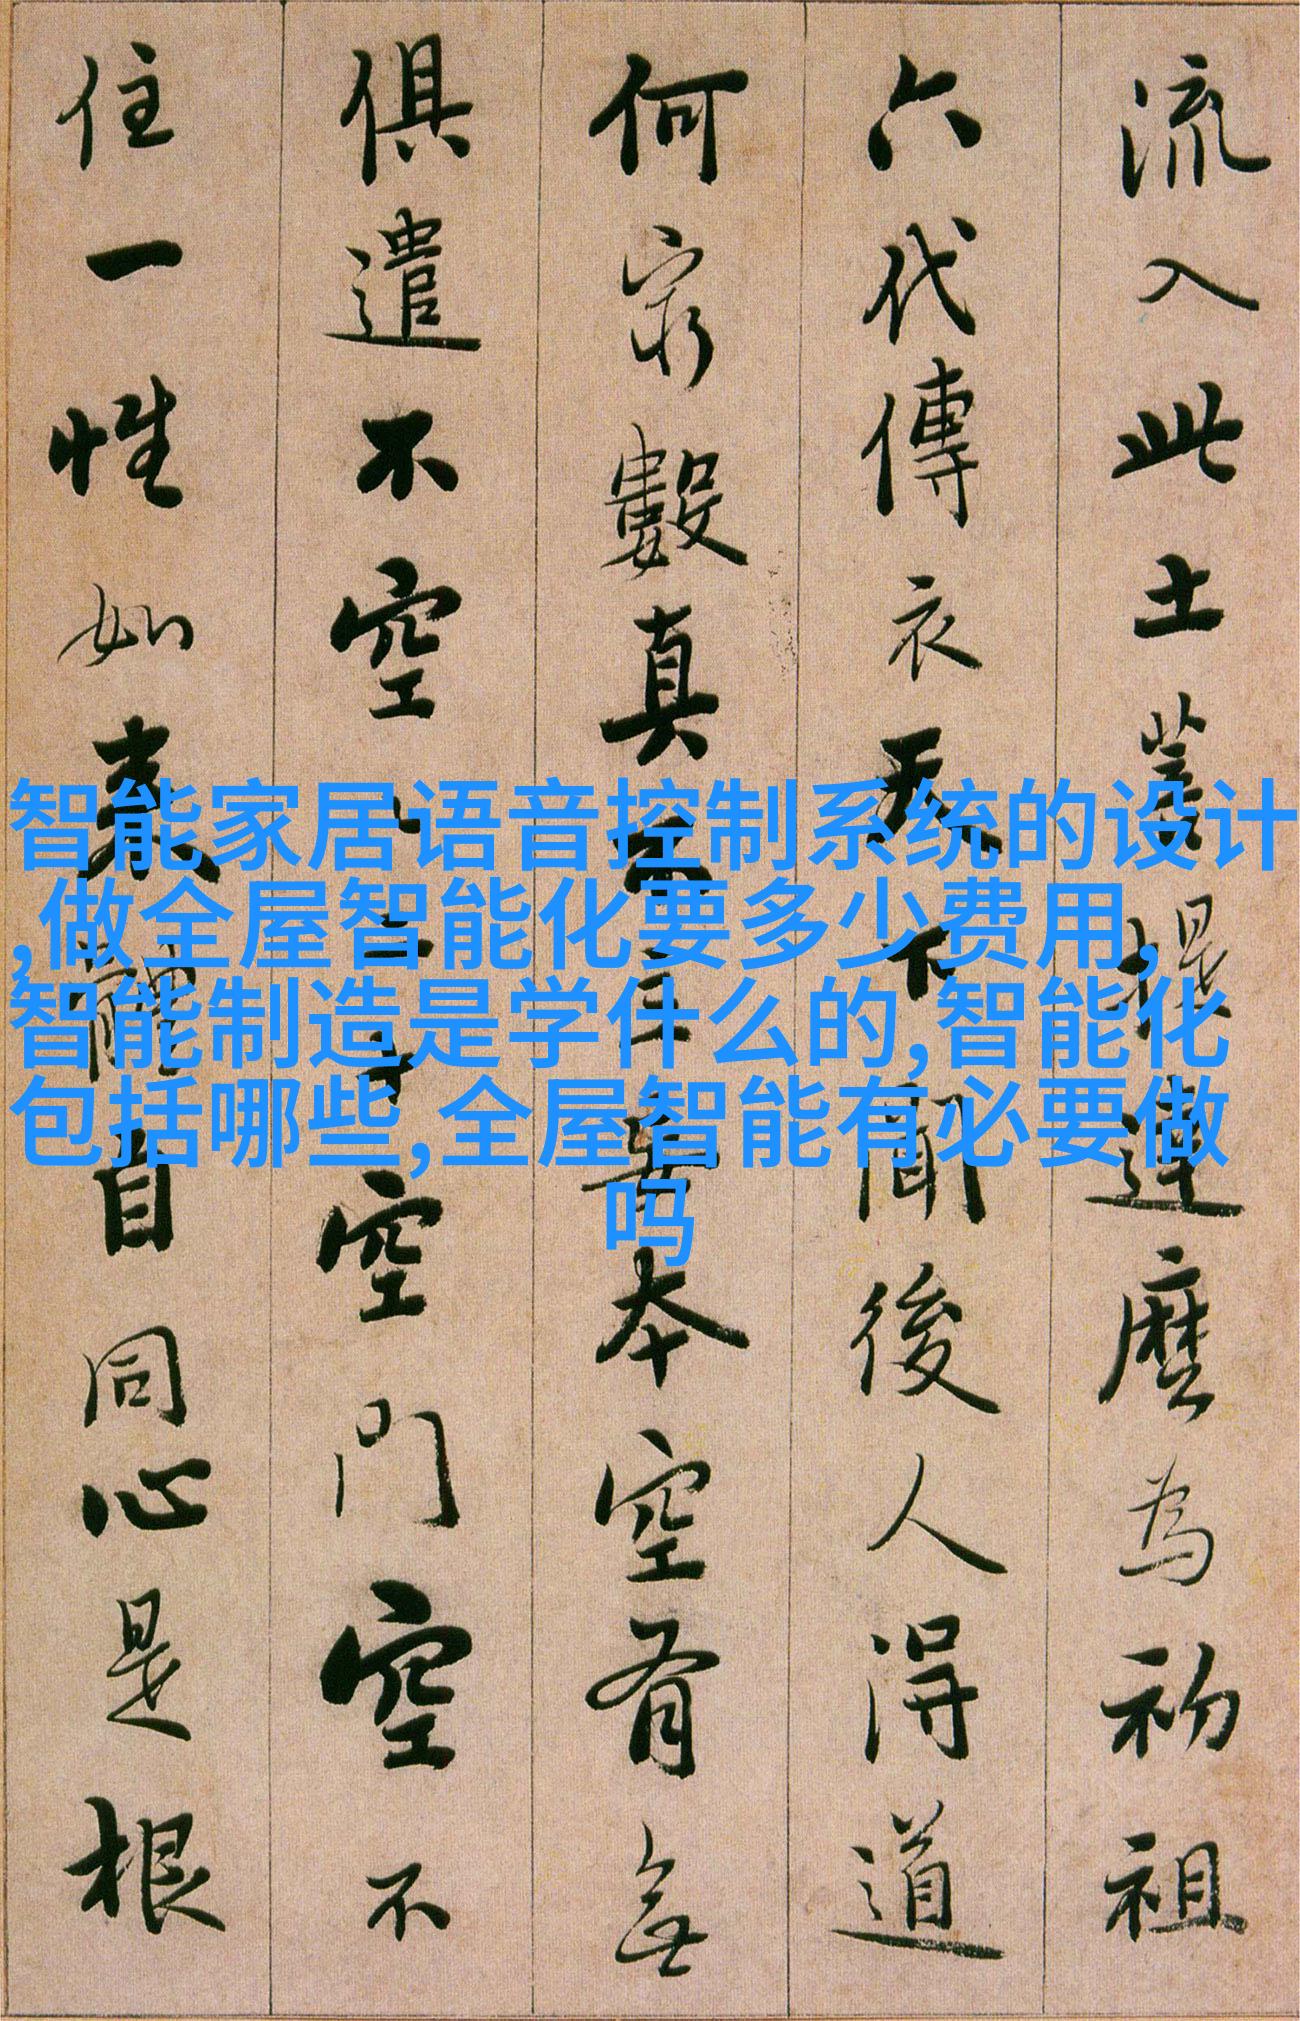 流入此土菩提達麼為初祖
六代傳衣天下聞後人得道
何窮數真不立妄本空有無
俱遣不空々二十空門空不
住一性如來體自同心是根
智能家居语音控制系统的设计
,做全屋智能化要多少费用,
智能制造是学什么的,智能化
包括哪些,全屋智能有必要做
吗